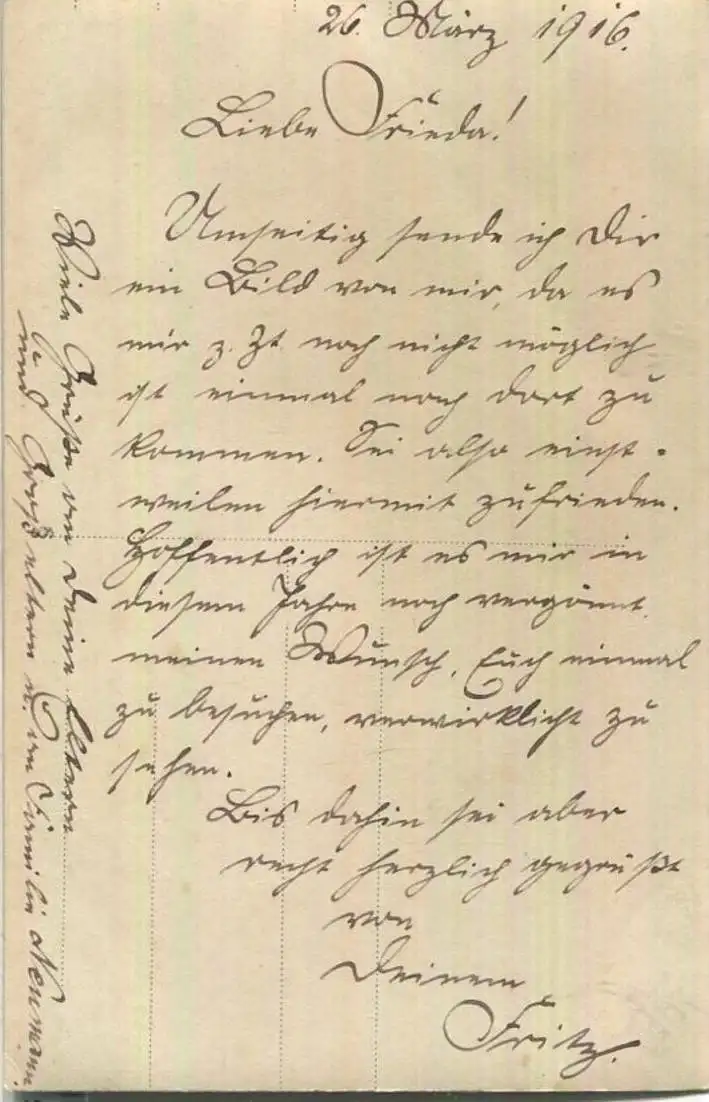 26. März 1916.
Liebe Frieda!
Umseitig sende ich Dir
ein Bild von mir, da es
mir z. Zt noch nicht möglich
ist einmal nach dort zu
kommen. Sei also einst-
weilen hiermit zufrieden.
Hoffentlich ist es mir in
diesem Jahre noch vergönnt
meinen Wunsch, Euch einmal
zu besuchen, verwirklicht zu
sehen.
Bis dahin sei aber
recht herzlich gegrüßt
von
Deinem
Fritz.
Viele Grüße an Deine Eltern
und Großeltern u. an Familie Neumann.